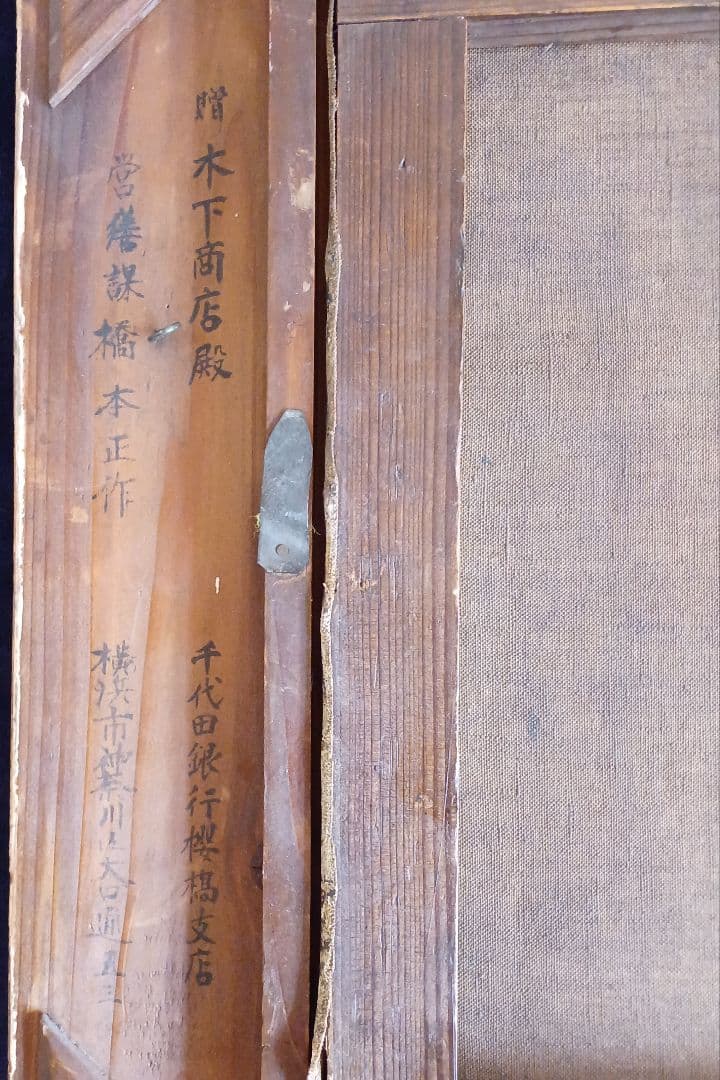 贈 木下商店殿
千代田銀行櫻橋支店
営繕課 橋本正作
横浜市神奈川区大口通五三